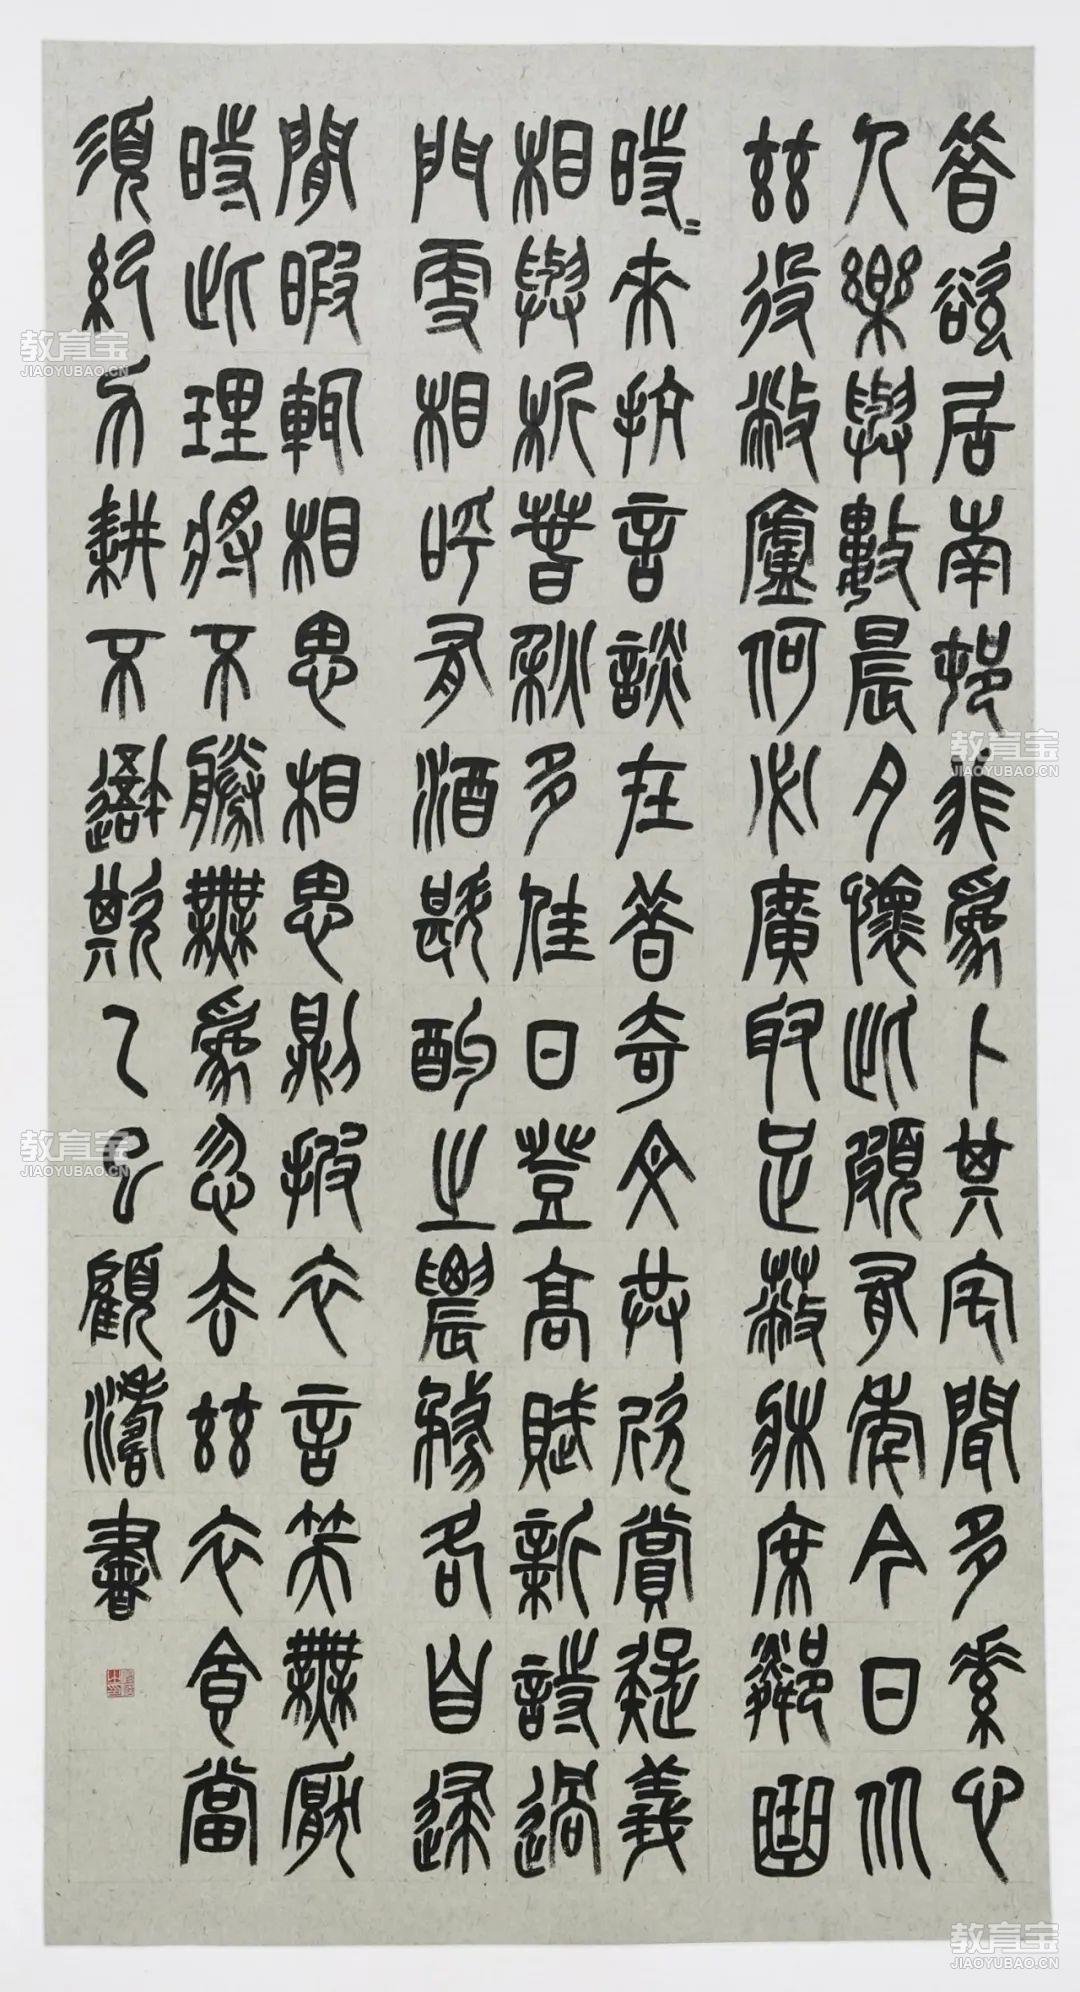 昔欲居南村非為卜其宅聞多素心
人樂與數晨夕懷此頗有年今日从
茲役敝廬何必廣取足蔽牀席鄰曲
時=來抗言談在昔奇文共欣賞疑義
相與析春秋多佳日登高賦新詩過
門更相呼有酒斟酌之農務各自歸
閒暇輒相思相思則披衣言笑無厭
時此理將不勝無為忽去茲衣食當
須紀力耕不吾欺乙巳顧濤書
教育宝
JIAOYUBAO.CN
教育宝
JIAOYUBAO.CN
教育宝
JIAOYUBAO.CN
教育宝
JIAOYUBAO.CN